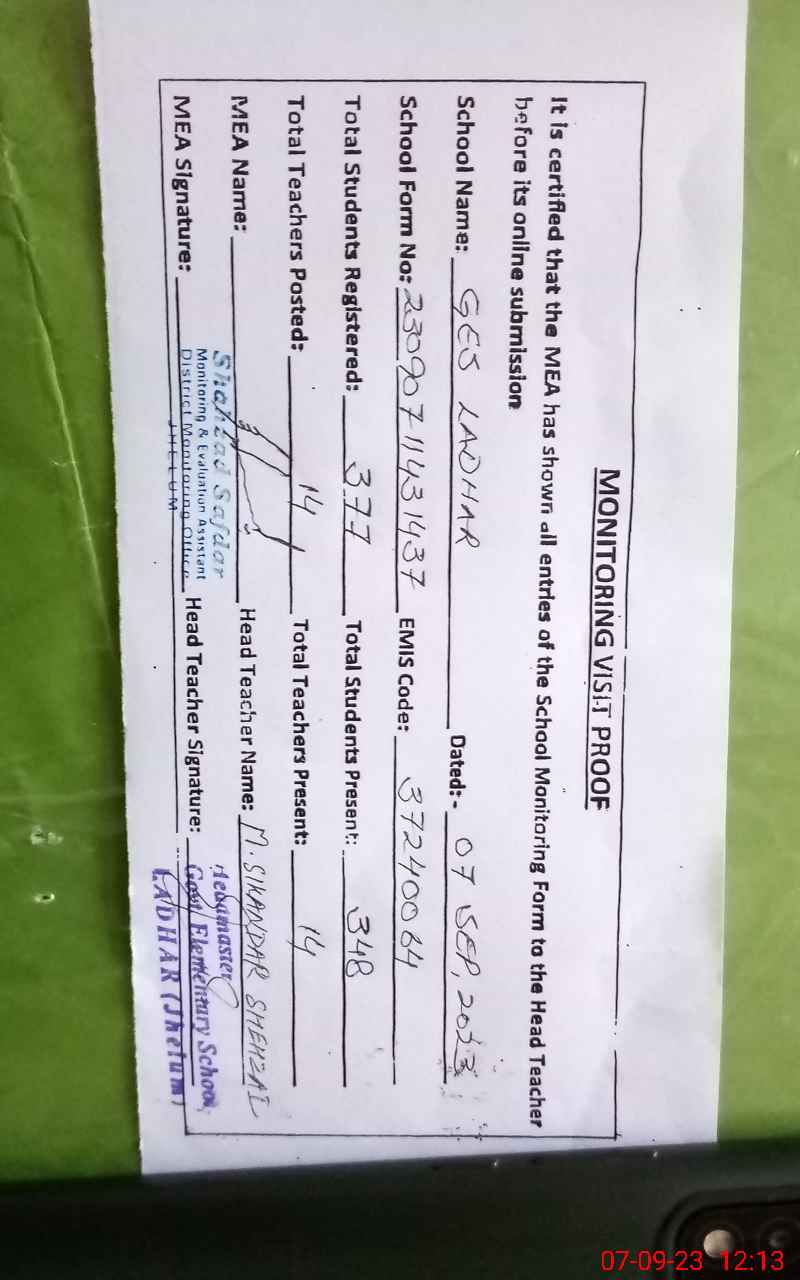 MONITORING VISIT PROOF
It is certified that the MEA has shown all entries of the School Monitoring Form to the Head Teacher
before its online submission
School Name: GES LADHAR Dated:- 07 SEP, 2023
School Form No: 23090711431437 EMIS Code: 37240064
Total Students Registered: 377 Total Students Present: 348
Total Teachers Posted: 14 Total Teachers Present: 14
MEA Name: Head Teacher Name: M. SIKANDAR SHEHZAD
Shahzad Safdar
Monitoring & Evaluation Assistant
District Monitoring Office
JHELUM
MEA Signature: Head Teacher Signature:
Headmaster
Govt Elementary School
LADHAR (Jhelum)
07-09-23 12:13